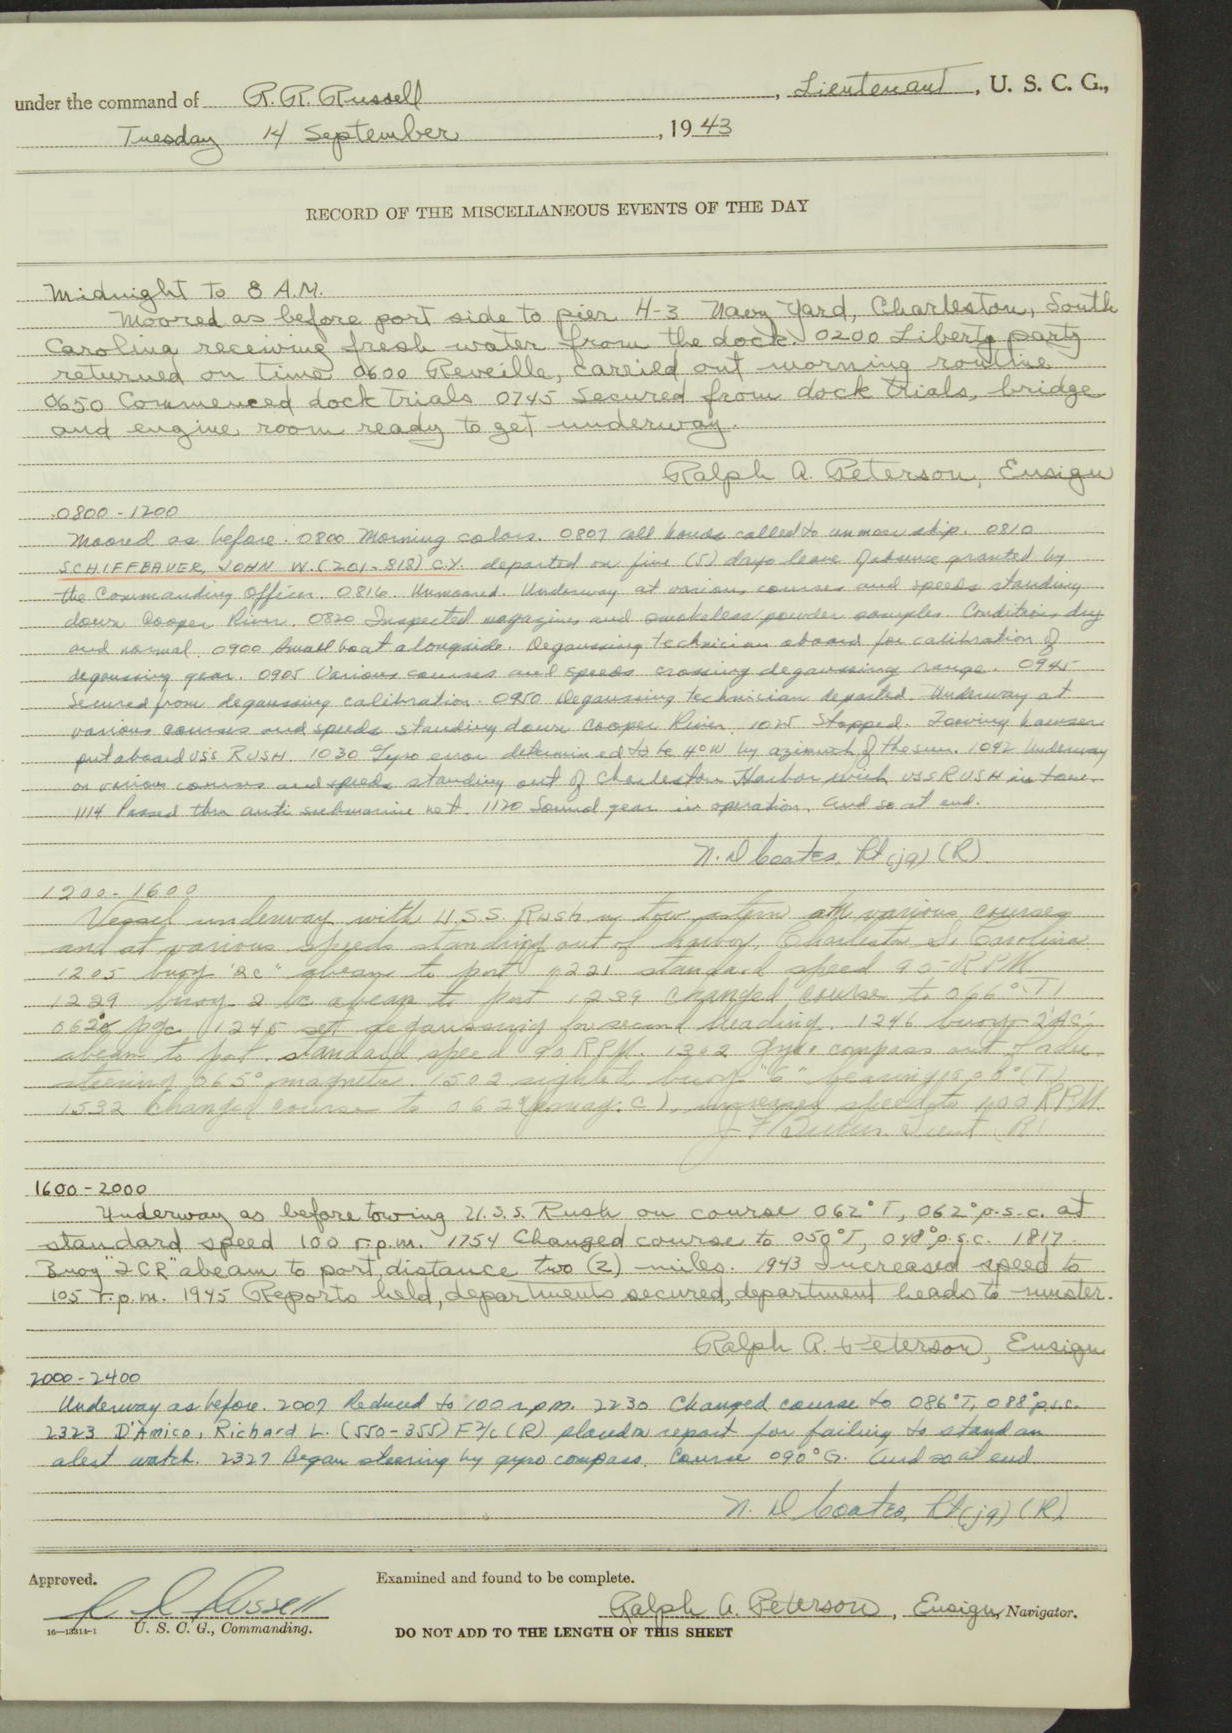 under the command of R. R. Russell, Lieutenant, U. S. C. G.,
Tuesday 14 September, 1943
RECORD OF THE MISCELLANEOUS EVENTS OF THE DAY
Midnight to 8 A.M.
Moored as before port side to pier H-3 Navy Yard, Charleston, South
Carolina receiving fresh water from the dock. 0200 Liberty party
returned on time 0600 Reveille, carried out morning routine
0650 Commenced dock trials 0745 Secured from dock trials, bridge
and engine room ready to get underway.
Ralph A. Peterson, Ensign
0800-1200
Moored as before. 0800 Morning colors. 0807 All hands called to unmoor ship. 0810
SCHIFFBAUER, JOHN W. (201-818) C.Y. departed on five (5) days leave of absence granted by
the Commanding Officer. 0816. Unmoored. Underway at various courses and speeds standing
down Cooper River. 0820 Inspected magazines and smokeless powder samples. Conditions dry
and normal. 0900 Small boat alongside. Degaussing technician aboard for calibration of
degaussing gear. 0905 Various courses and speeds crossing degaussing range. 0945
Secured from degaussing calibration. 0950 Degaussing technician departed. Underway at
various courses and speeds standing down Cooper River. 1025 Stopped. Towing hawser
put aboard USS RUSH. 1030 Gyro error determined to be 4° W by azimuth of the sun. 1042 Underway
on various courses and speeds standing out of Charleston Harbor with USS RUSH in tow.
1114 Passed thru anti submarine net. 1120 Sound gear in operation. And so at end.
N. D Coates, Lt(jg) (R)
1200-1600
Vessel underway with U.S.S. Rush in tow astern at various courses
and at various speeds standing out of harbor, Charleston S. Carolina.
1205 buoy "2C" abeam to port 1221 standard speed 95 RPM
1229 buoy 2 abeam to port 1239 changed course to 066° (T)
062° pgc 1245 set degaussing for second heading. 1246 buoy
abeam to port. standard speed 90 RPM. 1302 Gyro compass out of order
steering 065° magnetic. 1502 sighted buoy "6" bearing (T)
1532 changed course to 062 increased speed to 100 RPM.
Lieut (R)
1600-2000
Underway as before towing U.S.S. Rush on course 062°T, 062° p.s.c. at
standard speed 100 r.p.m. 1754 Changed course to 050°T, 048° p.s.c. 1817
Buoy "2CR" abeam to port, distance two (2) miles. 1943 Increased speed to
105 r.p.m. 1945 Reports held, departments secured, department heads to muster.
Ralph A. Peterson, Ensign
2000-2400
Underway as before. 2007 Reduced to 100 r.p.m. 2230 Changed course to 086°T, 088° p.s.c.
2323 D'Amico, Richard L. (550-355) F2/c (R) placed on report for failing to stand an
alert watch. 2327 Began steering by gyro compass. Course 090° G. And so at end
N. D Coates, Lt(jg) (R)
Approved. Examined and found to be complete.
R R Russell Ralph A. Peterson, Ensign, Navigator.
16—13314-1 U. S. C. G., Commanding. DO NOT ADD TO THE LENGTH OF THIS SHEET